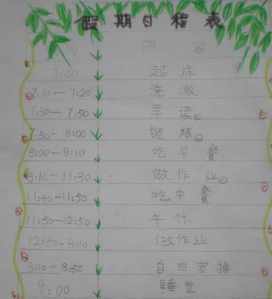 假期日程表
7:00 起床
7:10-7:20 洗漱
7:30-7:50 早读
7:50-8:00
8:00-8:10 吃早餐
8:10-11:30 做作业
11:30-11:50 吃中餐
11:50-12:50 午休
做作业
自由安排
9:00 睡觉